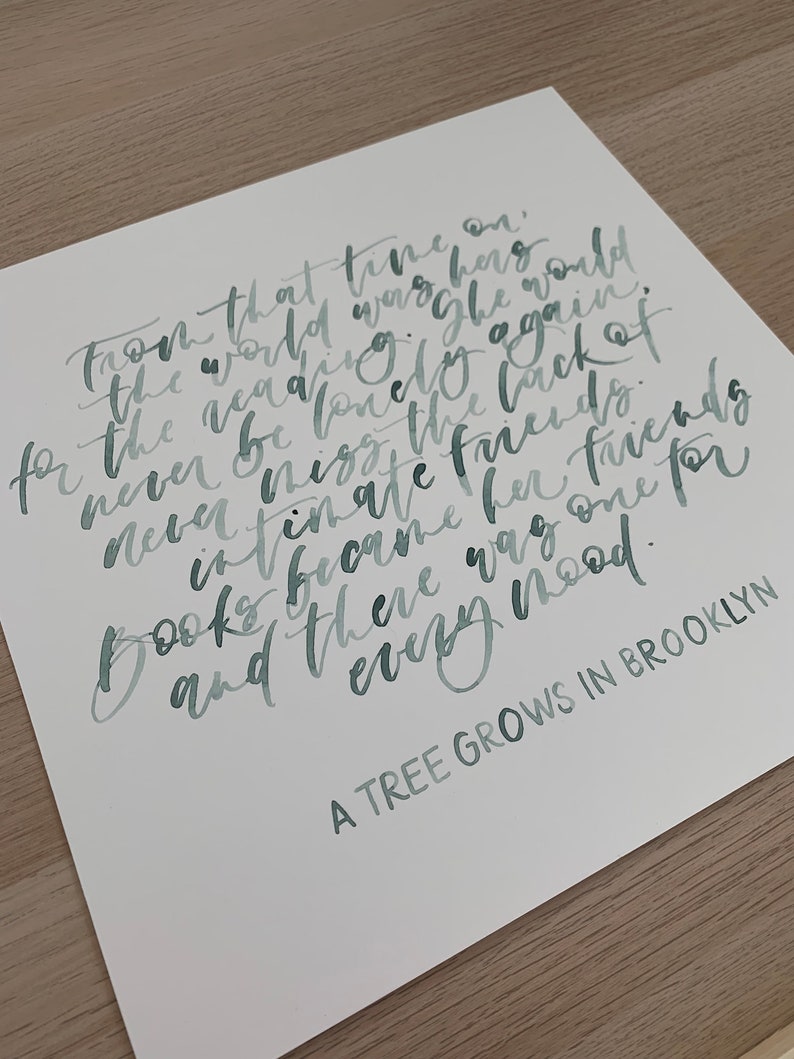 From that time on,
the world was hers
for the reading. She would
never be lonely again,
never miss the lack of
intimate friends.
Books became her friends
and there was one for
every mood.
A TREE GROWS IN BROOKLYN